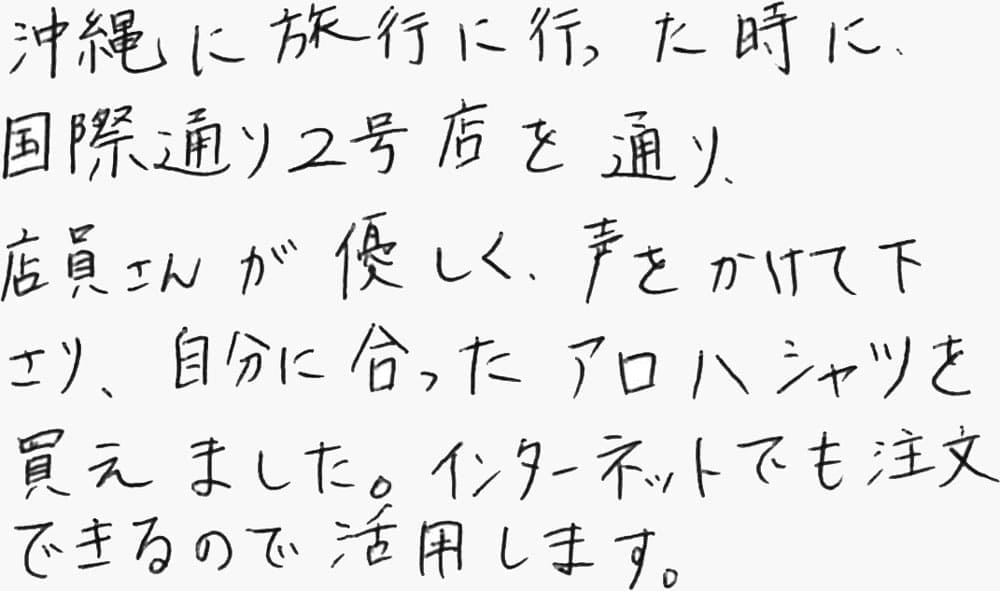 沖縄に旅行に行った時に、
国際通り2号店を通り、
店員さんが優しく、声をかけて下
さり、自分に合ったアロハシャツを
買えました。インターネットでも注文
できるので活用します。